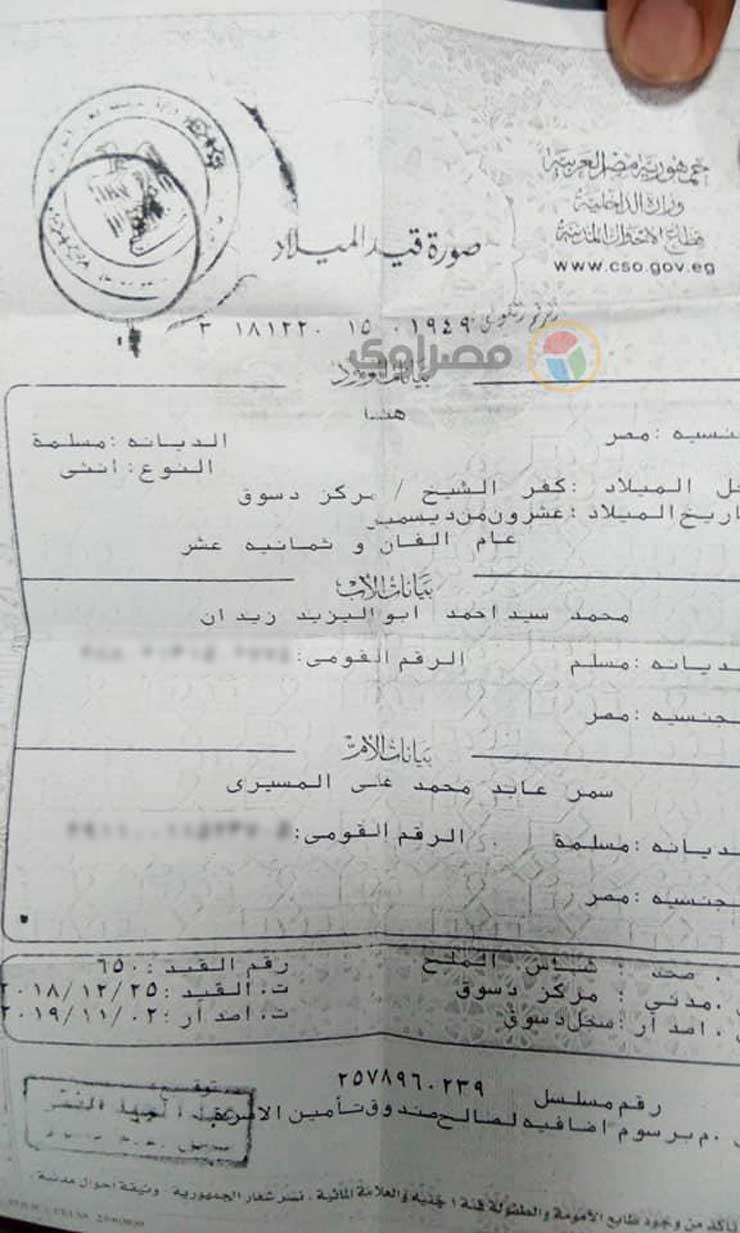 جمهورية مصر العربية
وزارة الداخلية
قطاع الأحوال المدنية
www.cso.gov.eg
صورة قيد الميلاد
٣ ١٨١٢٢٠ ١٥ ٠١٩٤٩
مصراوي
بيانات المولود
هنا
جنسيه : مصر
الديانه : مسلمة
النوع : انثى
الميلاد : كفر الشيخ / مركز دسوق
اريخ الميلاد : عشرون من ديسمبر
عام الفان و ثمانيه عشر
بيانات الأب
محمد سيد احمد ابو اليزيد زيدان
ديانه : مسلم الرقم القومى :
جنسيه : مصر
بيانات الأم
سمر عابد محمد على المسيرى
ديانه : مسلمة الرقم القومى :
جنسيه : مصر
. صحة : شباس الملح رقم القيد : ٦٥٠
. مدنى : مركز دسوق ت . القيد : ٢٠١٨/١٢/٢٥
. اصدار : سجل دسوق ت . اصدار : ٢٠١٩/١١/٠٢
رقم مسلسل ٢٥٧٨٩٦٠٢٣٩
. م برسوم اضافيه لصالح صندوق تأمين الاسرة
تأكد من وجود طابع الأمومة والطفولة فئة ١ جنيه والعلامة المائية . نسر شعار الجمهورية . وثيقة احوال مدنية .